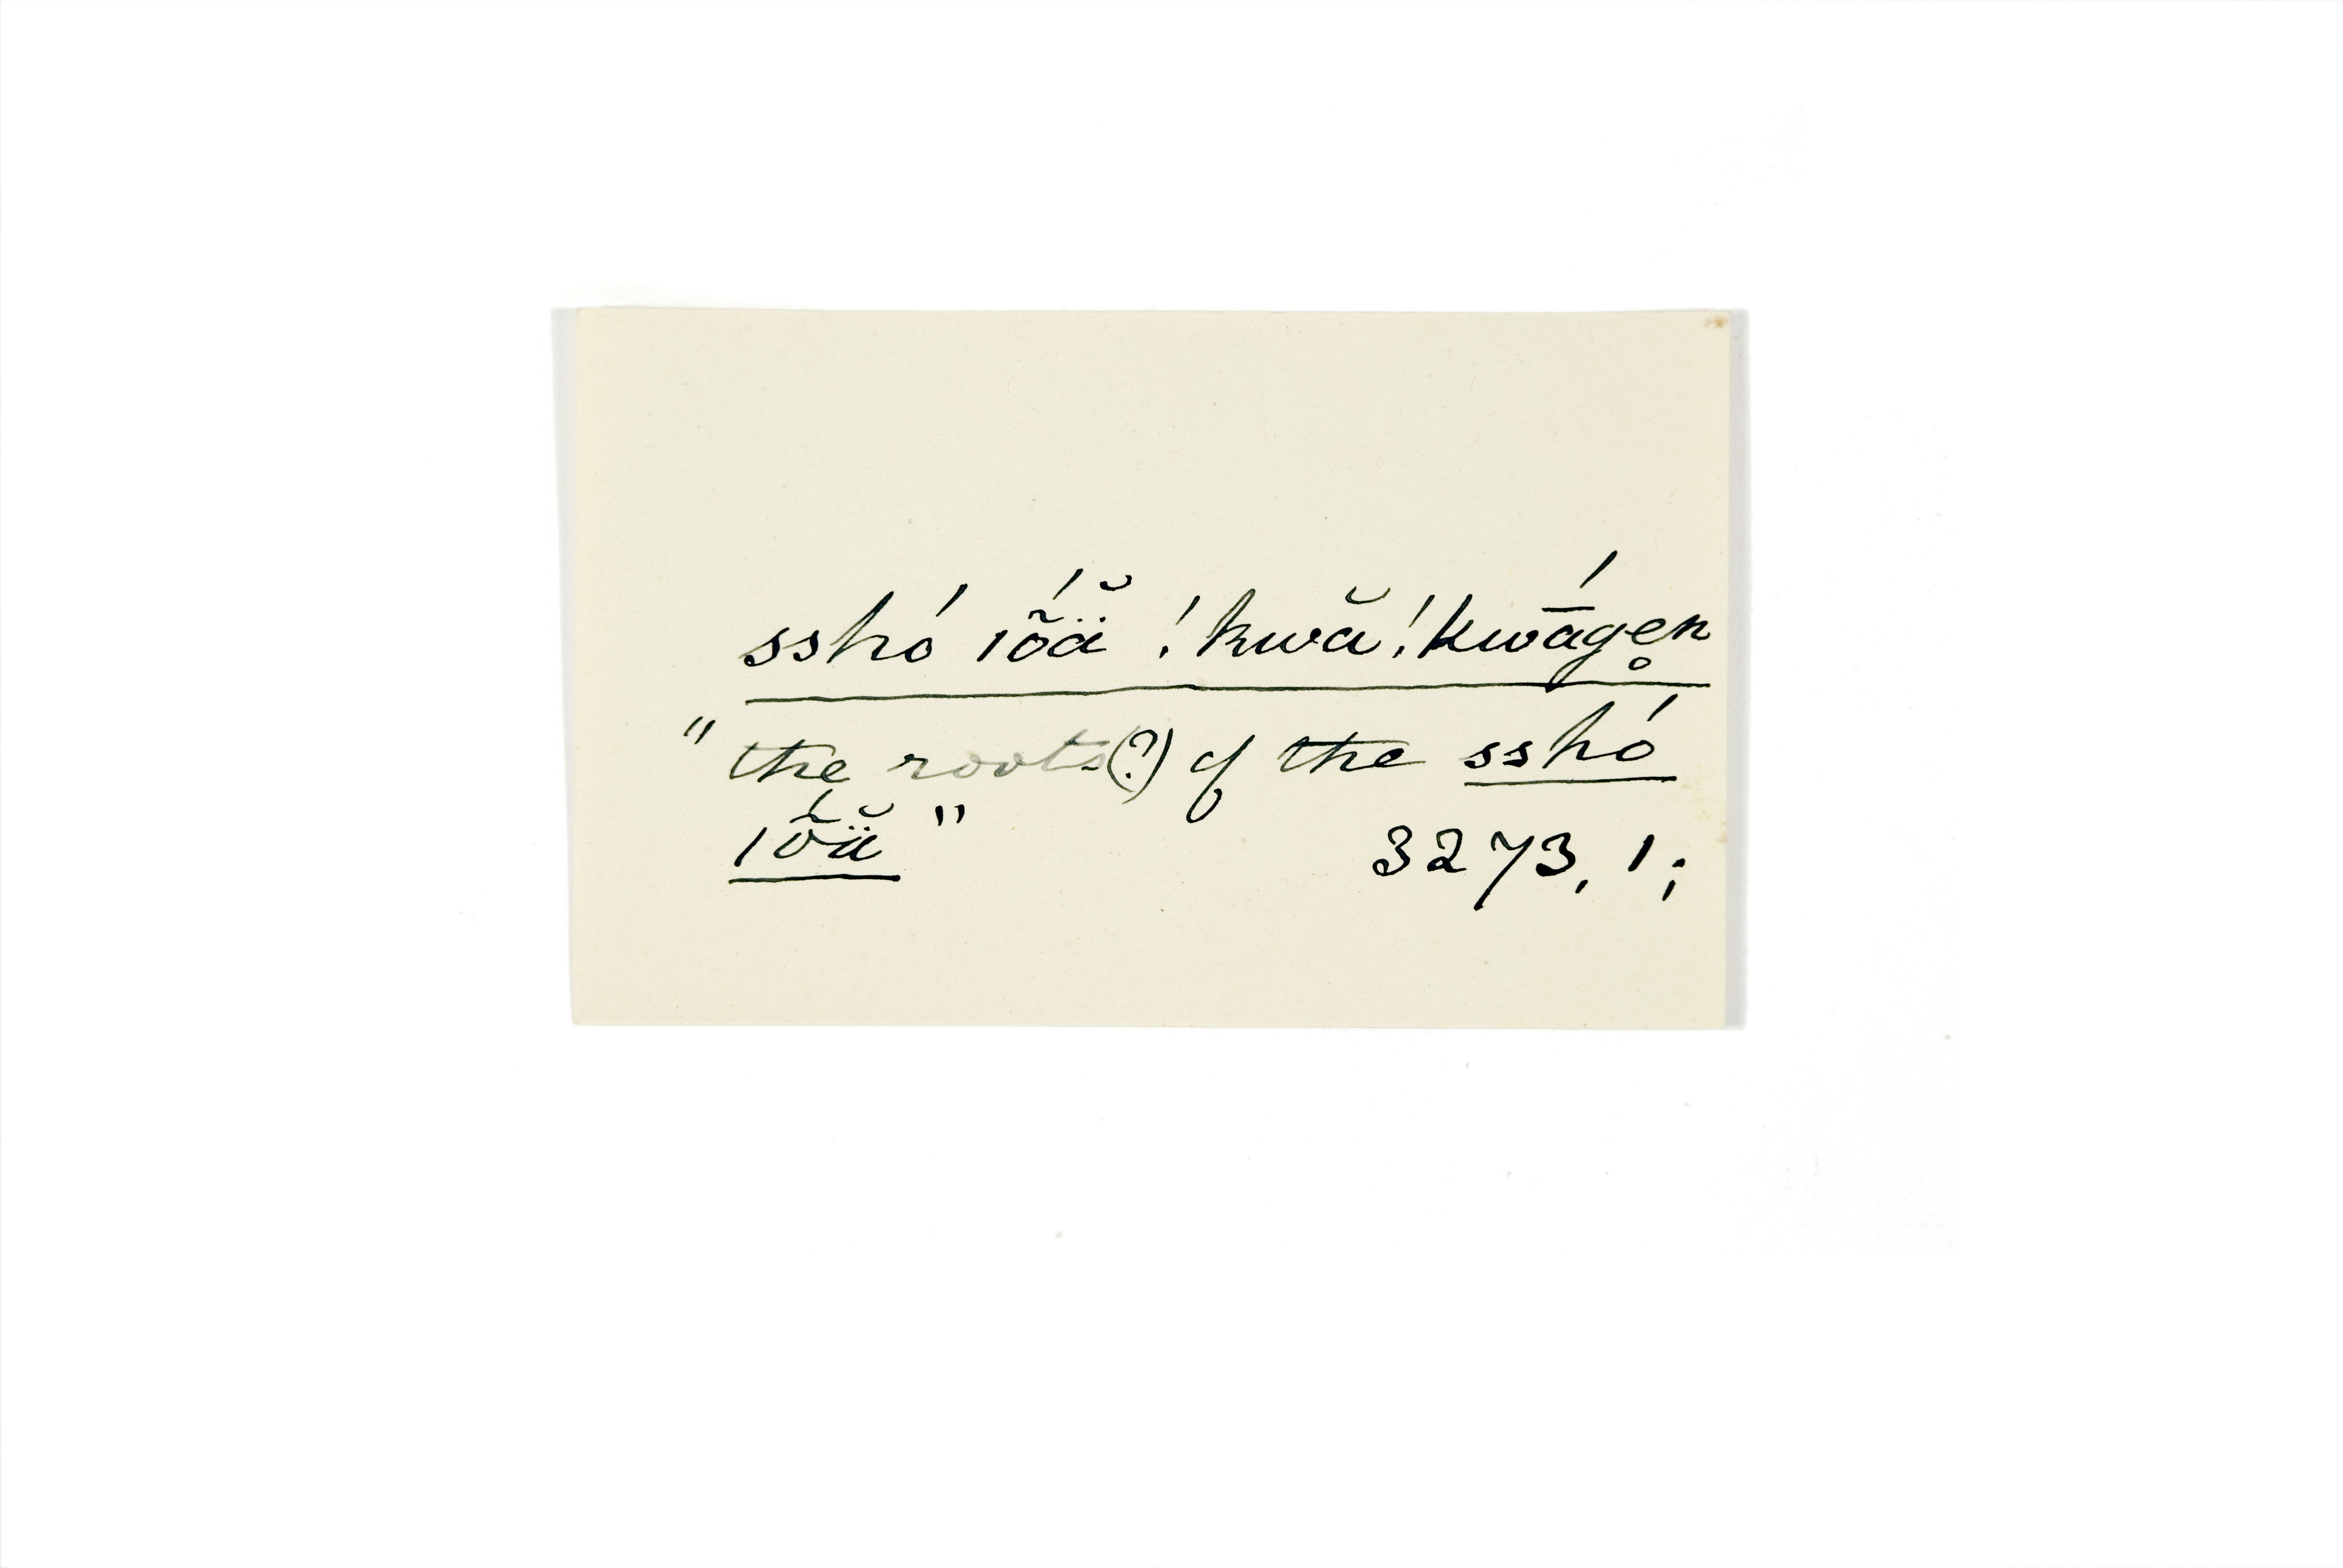 sshó ıṍä̆ !kwă!kwā́gen̥
"the roots(?) of the sshó
ıṍä̆" 3273, 1;